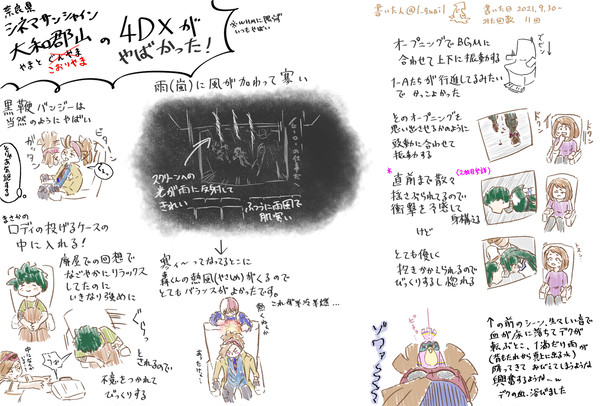 奈良県
シネマサンシャイン
大和郡山の4DXが
やばかった!
やまと
こおりやま
黒鞭バンジーは
当然のようにやばい
まさかの
ロディの投げるケースの
中に入れる!
部屋での回想で
なごやかにリラックス
してたのに
いきなり強めに
ぐらっ
とされるので
不意をつかれて
びっくりする
雨(嵐)に風が加わって寒い
スクリーンへの
光が雨に反射して
きれい
ふつうに雨風で
肌寒い
寒ィ〜ってなってるとこに
轟くんの熱風(やさしめ)がくるので
とてもバランスがよかったです。
これが半冷半燃…
書いた日 2021.9.30〜
みた回数 11回
オープニングでBGMに
合わせて上下に振動する
1-Aたちが行進してるみたい
でかっこよかった
そのオープニングを
思い出させるかのように
鼓動に合わせて
振動する
直前まで散々
揺さぶられてるので
衝撃を予感して
身構える
けど
とても優しく
抱きかかえられるので
びっくりするし惚れる
ドクン
ドクン
ゾワァ〜
↑の前のシーン、生々しい音で
血が床に落ちてデクが
転ぶとこ、1滴だけ雨が
(背もたれから真上に出る水)
降ってきて あびてしまうような
興奮するような…w
デクの血、浴びました